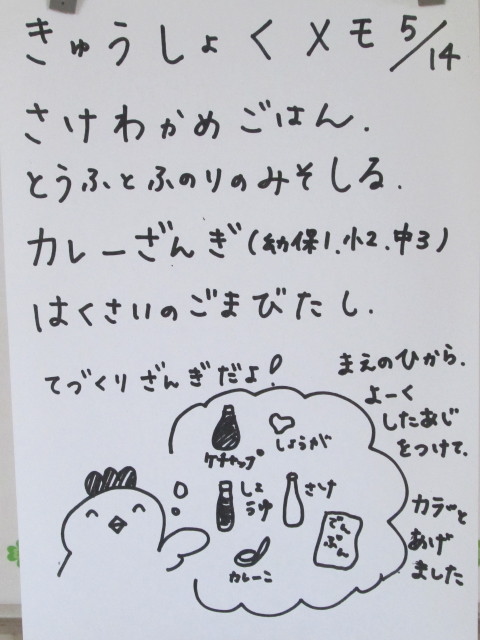 きゅうしょくメモ 5/14
さけわかめごはん.
とうふとふのりのみそしる.
カレーざんぎ(幼保1.小2.中3)
はくさいのごまびたし.
てづくりざんぎだよ!
まえのひから.
よーく
したあじ
をつけて.
カラッと
あげ
ました
ケチャップ
しょうが
しょ
うゆ
さけ
カレーこ
でん
ぷん